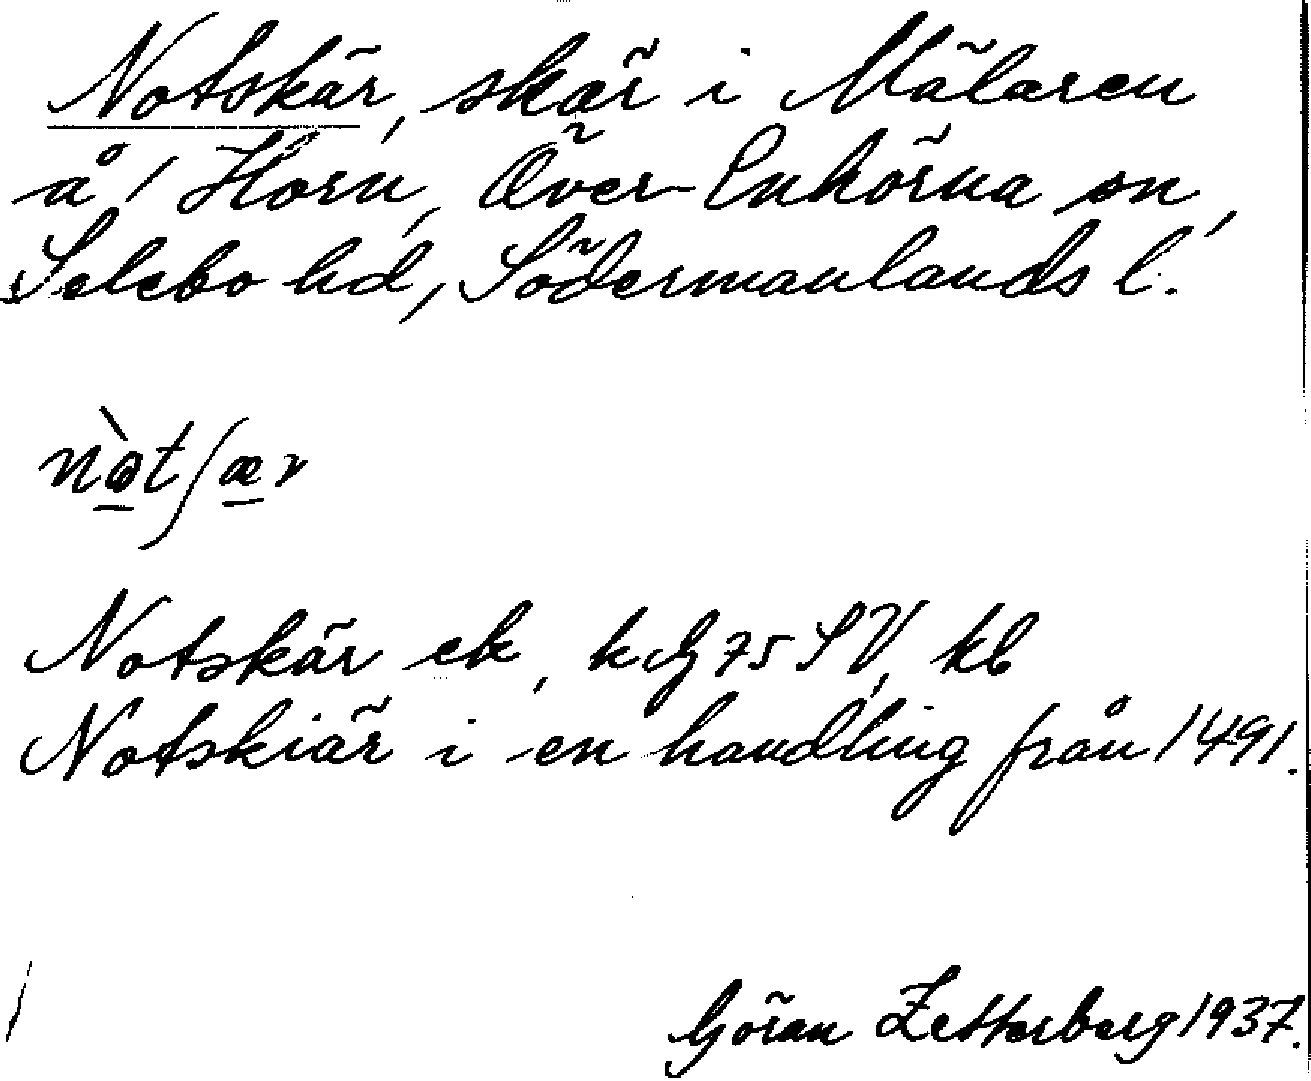 Notskär, skär i Mälaren
å 1 Horn, Över-Enhörna sn,
Selebo hd, Södermanlands l.
nòtʃær
Notskär ek, kG 75 SV, kb
Notskiär i en handling från 1491.
Göran Zetterberg 1937.